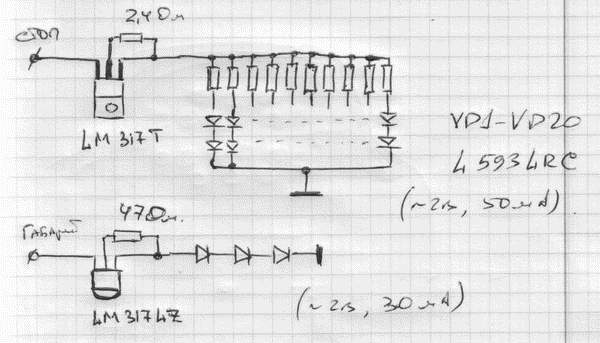 СТОП
2,4 Ом
LM317T
VD1-VD20
L5934RC
(~2В, 50мА)
ГАБАРИТ
47 Ом.
LM317LZ
(~2В, 30мА)